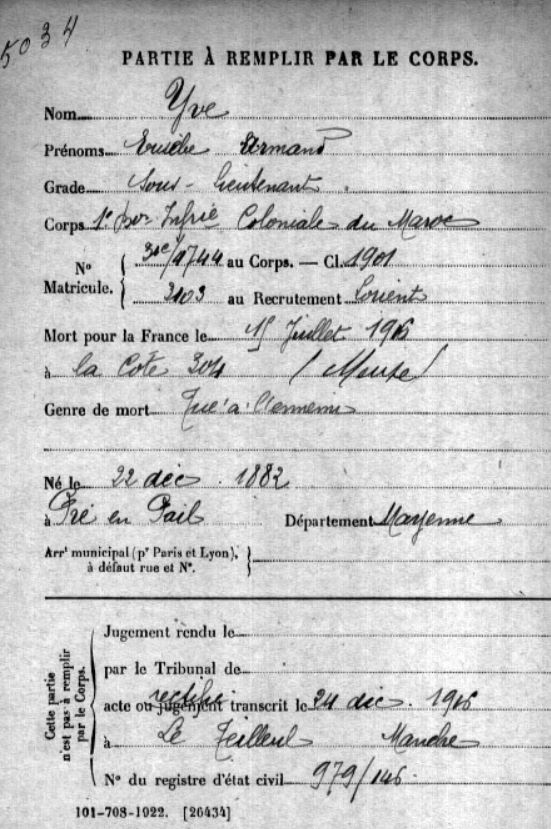 5034
PARTIE À REMPLIR PAR LE CORPS.
Nom Yve
Prénoms Armand
Grade Sous-Lieutenant
Corps 1e Infrie Coloniale du Maroc
No Matricule. 1744 au Corps. — Cl. 1901
3103 au Recrutement Lorient
Mort pour la France le 15 Juillet 1916
à la Cote 304 (Meuse)
Genre de mort Tué à l'ennemi
Né le 22 déc. 1882
à Pré en Pail Département Mayenne
Arrt municipal (pr Paris et Lyon),
à défaut rue et No.
Cette partie
n'est pas à remplir
par le Corps.
Jugement rendu le
par le Tribunal de
rectifié
acte ou jugement transcrit le 24 déc. 1916
à Le Teilleul Manche
No du registre d'état civil 979/146
101-708-1922. [26434]